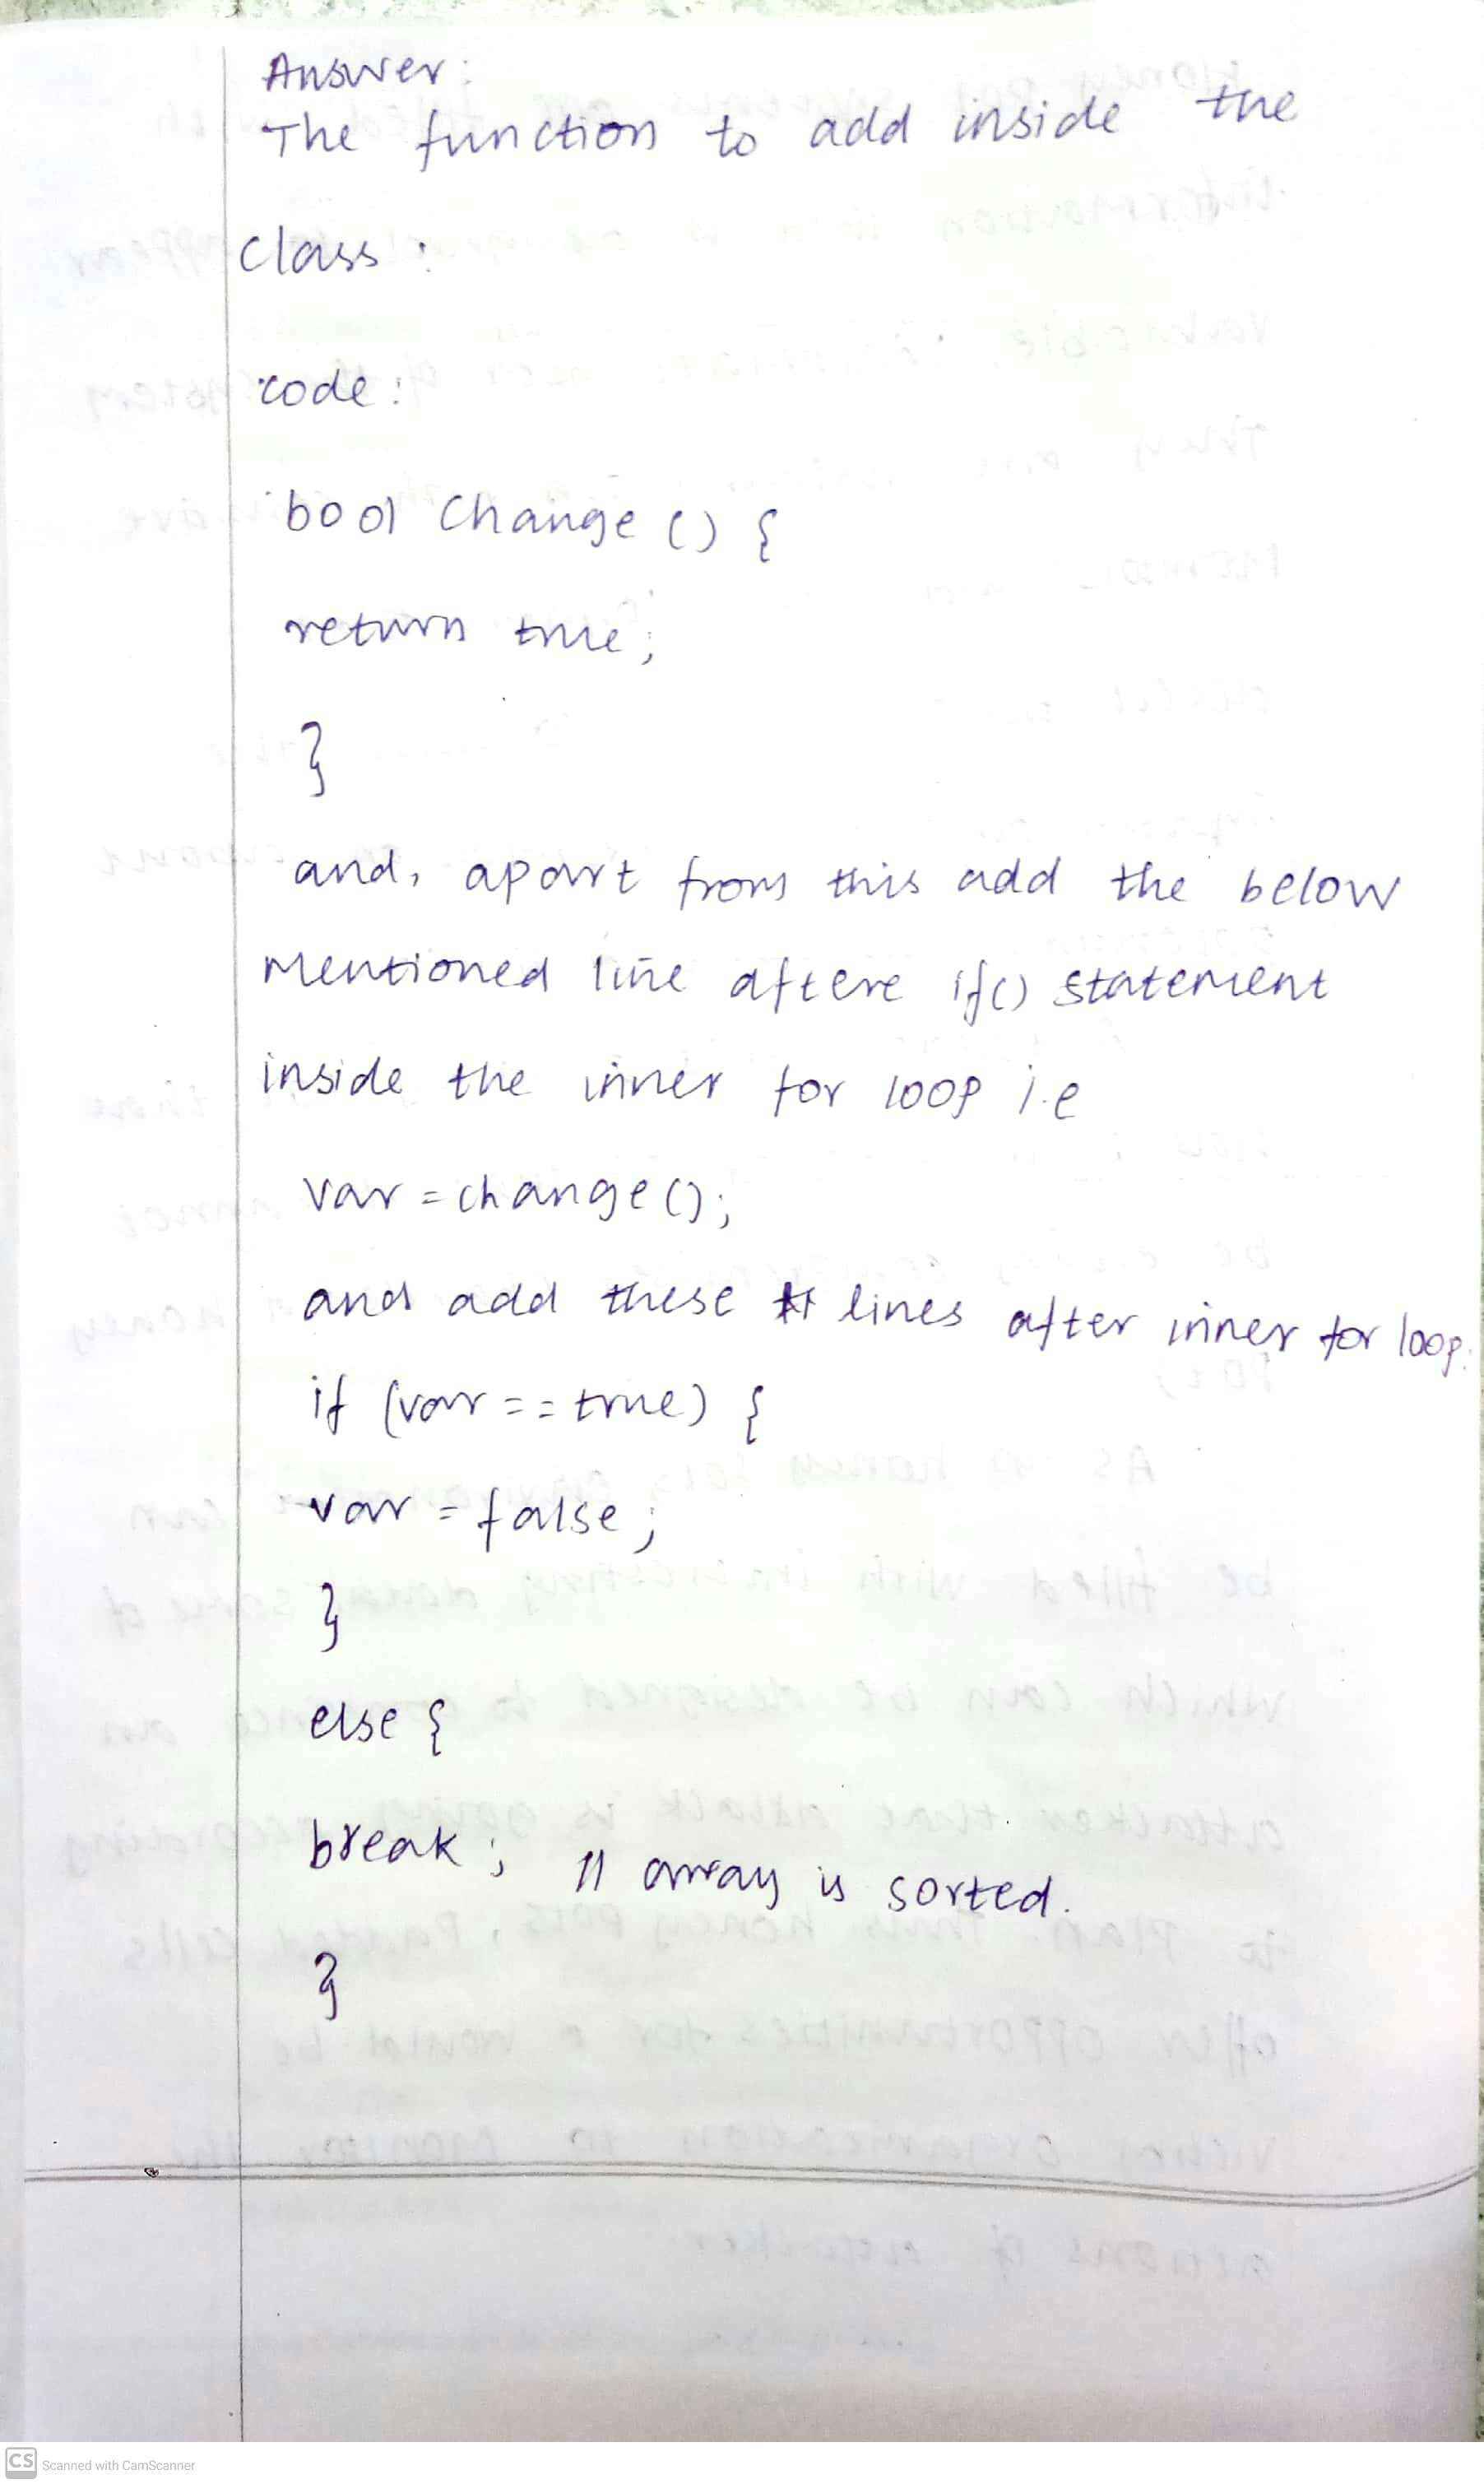 Answer:
The function to add inside the
class :
code :
bool Change () {
return true;
}
and, apart from this add the below
Mentioned line aftere if() statement
inside the inner for loop i.e
var = change ();
and add these lines after inner for loop.
if (var == true) {
var = false;
}
else {
break; // array is sorted.
}
CS Scanned with CamScanner